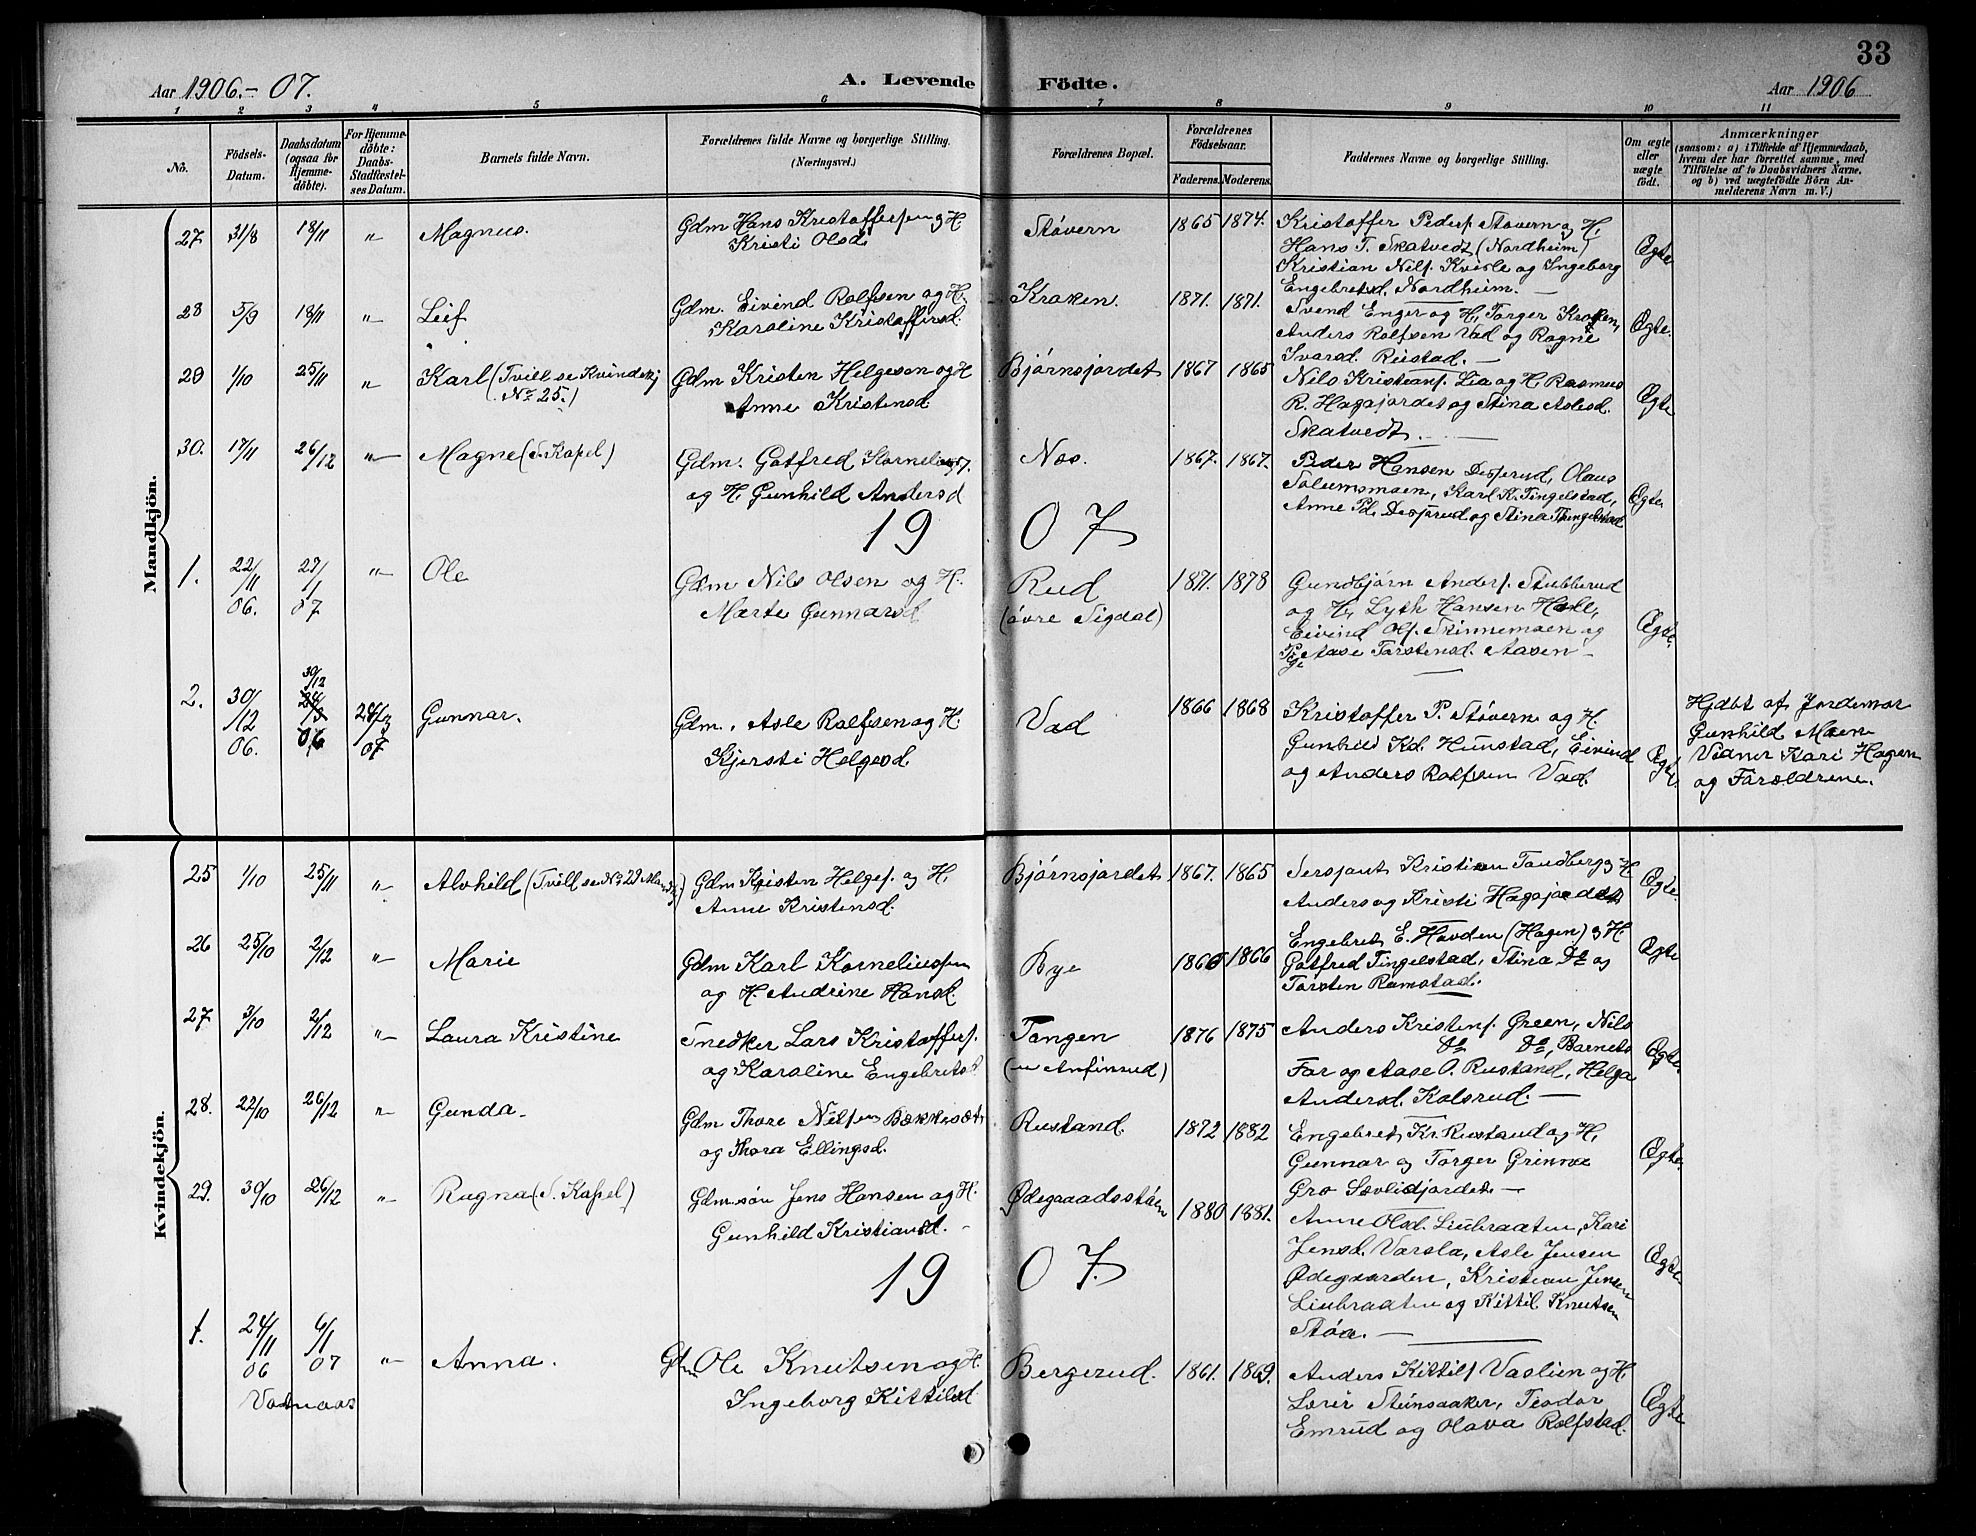 33
Aar 1906.-07.
A. Levende Födte.
Aar 1906
1 2 3 4 5 6 7 8 9 10 11
No.
Födsels-Datum.
Daabsdatum (ogsaa for Hjemme-döbte).
For Hjemme-döbte: Daabs-Stadfæstel-ses Datum.
Barnets fulde Navn.
Forældrenes fulde Navne og borgerlige Stilling. (Næringsvei.)
Forældrenes Bopæl.
Forældrenes Födselsaar.
Faderens. Moderens.
Faddernes Navne og borgerlige Stilling.
Om ægte eller uægte födt.
Anmærkninger
(saasom: a) i Tilfælde af Hjemmedaab, hvem der har forrettet samme, med Tilföielse af to Daabsvidners Navne, og b) ved uægtefödte Börn An-melderens Navn m. V.)
Mandkjön.
27. 31/8 18/11 " Magnus. Gdm Hans Kristoffersen og H. Støvern 1865 1874. Kristoffer Peders. Støvern og H.
Kristi Olsd. Hans T. Skatvedt (Nordheim) Ægte
Kristian Nils. Kvisle og Ingeborg
Engebretsd. Nordheim. —
28 5/9 18/11 " Leif Gdm. Eivind Rolfsen og H. Kroken. 1871. 1871. Svend Enger og H, Torger Kroken,
Karoline Kristoffersd. Anders Rolfsen Vad og Ragne Ægte.
Ivarsd. Rustad. —
29 1/10 25/11 " Karl (Tvill se Kvindekj Gdm Kristen Helgesen og H Bjørnsjordet 1867 1865 Nils Kristians. Lia og H. Rasmus
No 25.) Anne Kristensd. R. Hagajordet og Stina Aslesd. Ægte
Skatvedt. —
30. 17/11 26/12 " Magne (S. Kapel) Gdm. Gotfred Korneliuss. Nos. 1867. 1867. Peder Hansen Desperud, Olaus
og H. Gunhild Andersd Solumsmoen, Karl K. Tingelstad, Ægte
Anne Pd. Desperud og Stina Tingelstad
1907
1. 22/11 06. 27/1 07 " Ole Gdm Nils Olsen og H. Rud 1871. 1878 Gundbjørn Anders. Stubberud
Marte Gunnarsd (øvre Sigdal) og H, Lyth Hansen Hole,
Eivind Ols. Skinnemoen og Ægte.
Pige Aase Torstensd. Aasen —
2. 30/12 06. 30/12 06 24/3 07 Gunnar. Gdm. Asle Rolfsen og H. Vad 1866 1868 Kristoffer P. Støvern og H.
Kjersti Helgesd. Gunhild Kd. Hunstad, Eivind Ægte.
og Anders Rolfsen Vad.
Hjdbt af Jordemor
Gunhild Moen
Vidner Kari Hagen
og Forældrene.
Kvindekjön.
25 1/10 25/11 " Alvhild (Tvill se No 29 Mandkj) Gdm Kristen Helges. og H. Bjørnsjordet 1867. 1865 Sersjant Kristian Tandberg og H
Anne Kristensd. Anders og Kristi Hagajordet Ægte.
26 25/10 2/12 " Marie Gdm Karl Korneliussen Bye 1866 1866 Engebret E. Hovden (Hagen) og H
og H. Andrine Hansd. Gotfred Tingelstad, Stina Do og Ægte
Torsten Ramstad.
27. 3/10 2/12 " Laura Kristine Snedker Lars Kristoffers. Tangen 1876 1875 Anders Kristens. Green, Nils
og Karoline Engebretsd. (u Anfinrud) Do Do, Barnets Ægte.
Far og Aase O. Rustand, Helga
Andersd. Kolsrud. —
28. 22/10 26/12 " Gunda. Gdm Thore Nilsen Bækkesæt Rustand. 1872 1882 Engebret Kr. Rustand og H,
og Thora Ellingsd. Gunnar og Torger Grinna Ægte.
Gro Sævlidjordet —
29. 30/10 26/12 " Ragna (S. Kapel) Gdm.søn Jens Hansen og H. Ødegaardsstøen 1880 1881. Anne Olsd. Liubraaten, Kari
Gunhild Kristiansd. Jensd. Varsla, Asle Jensen Ægte.
Ødegaarden, Kristian Jensen
Liubraaten og Kittil Knutsen
Støa. —
1907.
1. 24/11 06 6/1 07 " Anna. Gdm Ole Knutsen og H. Bergerud. 1861. 1869. Anders Kittils Vaslien og H
Vadnaas Ingeborg Kittilsd Steinsaaker, Teodor Ægte
Emrud og Olava Rolfstad.